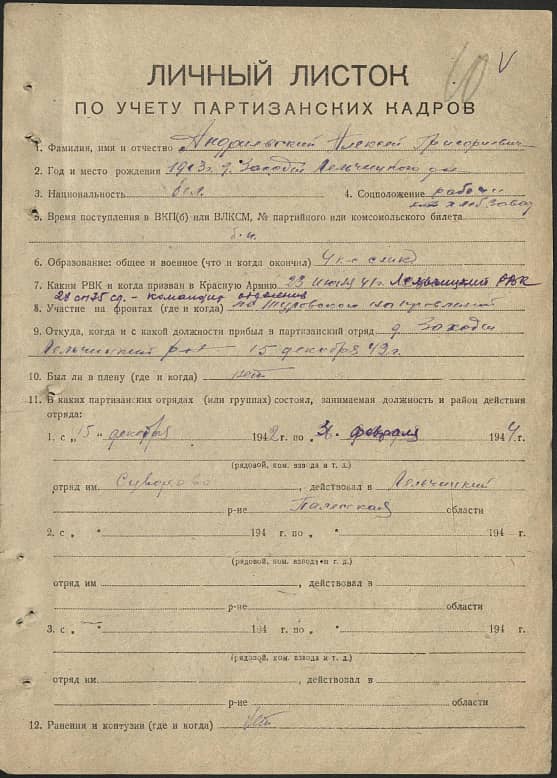 V
ЛИЧНЫЙ ЛИСТОК
ПО УЧЕТУ ПАРТИЗАНСКИХ КАДРОВ
1. Фамилия, имя и отчество Андрильский Алексей Григориевич
2. Год и место рождения 1903 г. д. Заходы Лельчицкого р-на
3. Национальность бел. 4. Соцположение рабочий
хлебзавод
5. Время поступления в ВКП(б) или ВЛКСМ, № партийного или комсомольского билета
б. п.
6. Образование: общее и военное (что и когда окончил) 4 кл.
7. Каким РВК и когда призван в Красную Армию 23 июля 41 г. Лельчицкий РВК
28 сп 75 сд. - командир отделения
8. Участие на фронтах (где и когда) по Туровскому направлению
9. Откуда, когда и с какой должности прибыл в партизанский отряд д. Заходы
Лельчицкий р-н 15 декабря 42 г.
10. Был ли в плену (где и когда) нет
11. В каких партизанских отрядах (или группах) состоял, занимаемая должность и район действия
отряда:
1. с „15 „ декабря 1942 г. по „ февраля 1944 г.
(рядовой, ком. взвода и т. д.)
отряд им. Суворова, действовал в Лельчицкий
р-не Полесская области
2. с „ „ 194 г. по „ „ 194 г.
(рядовой, ком. взвода и т. д.)
отряд им , действовал в
р-не области
3. с „ „ 194 г. по „ „ 194 г.
(рядовой, ком. взвода и т. д.)
отряд им. , действовал в
р-не области
12. Ранения и контузии (где и когда) нет